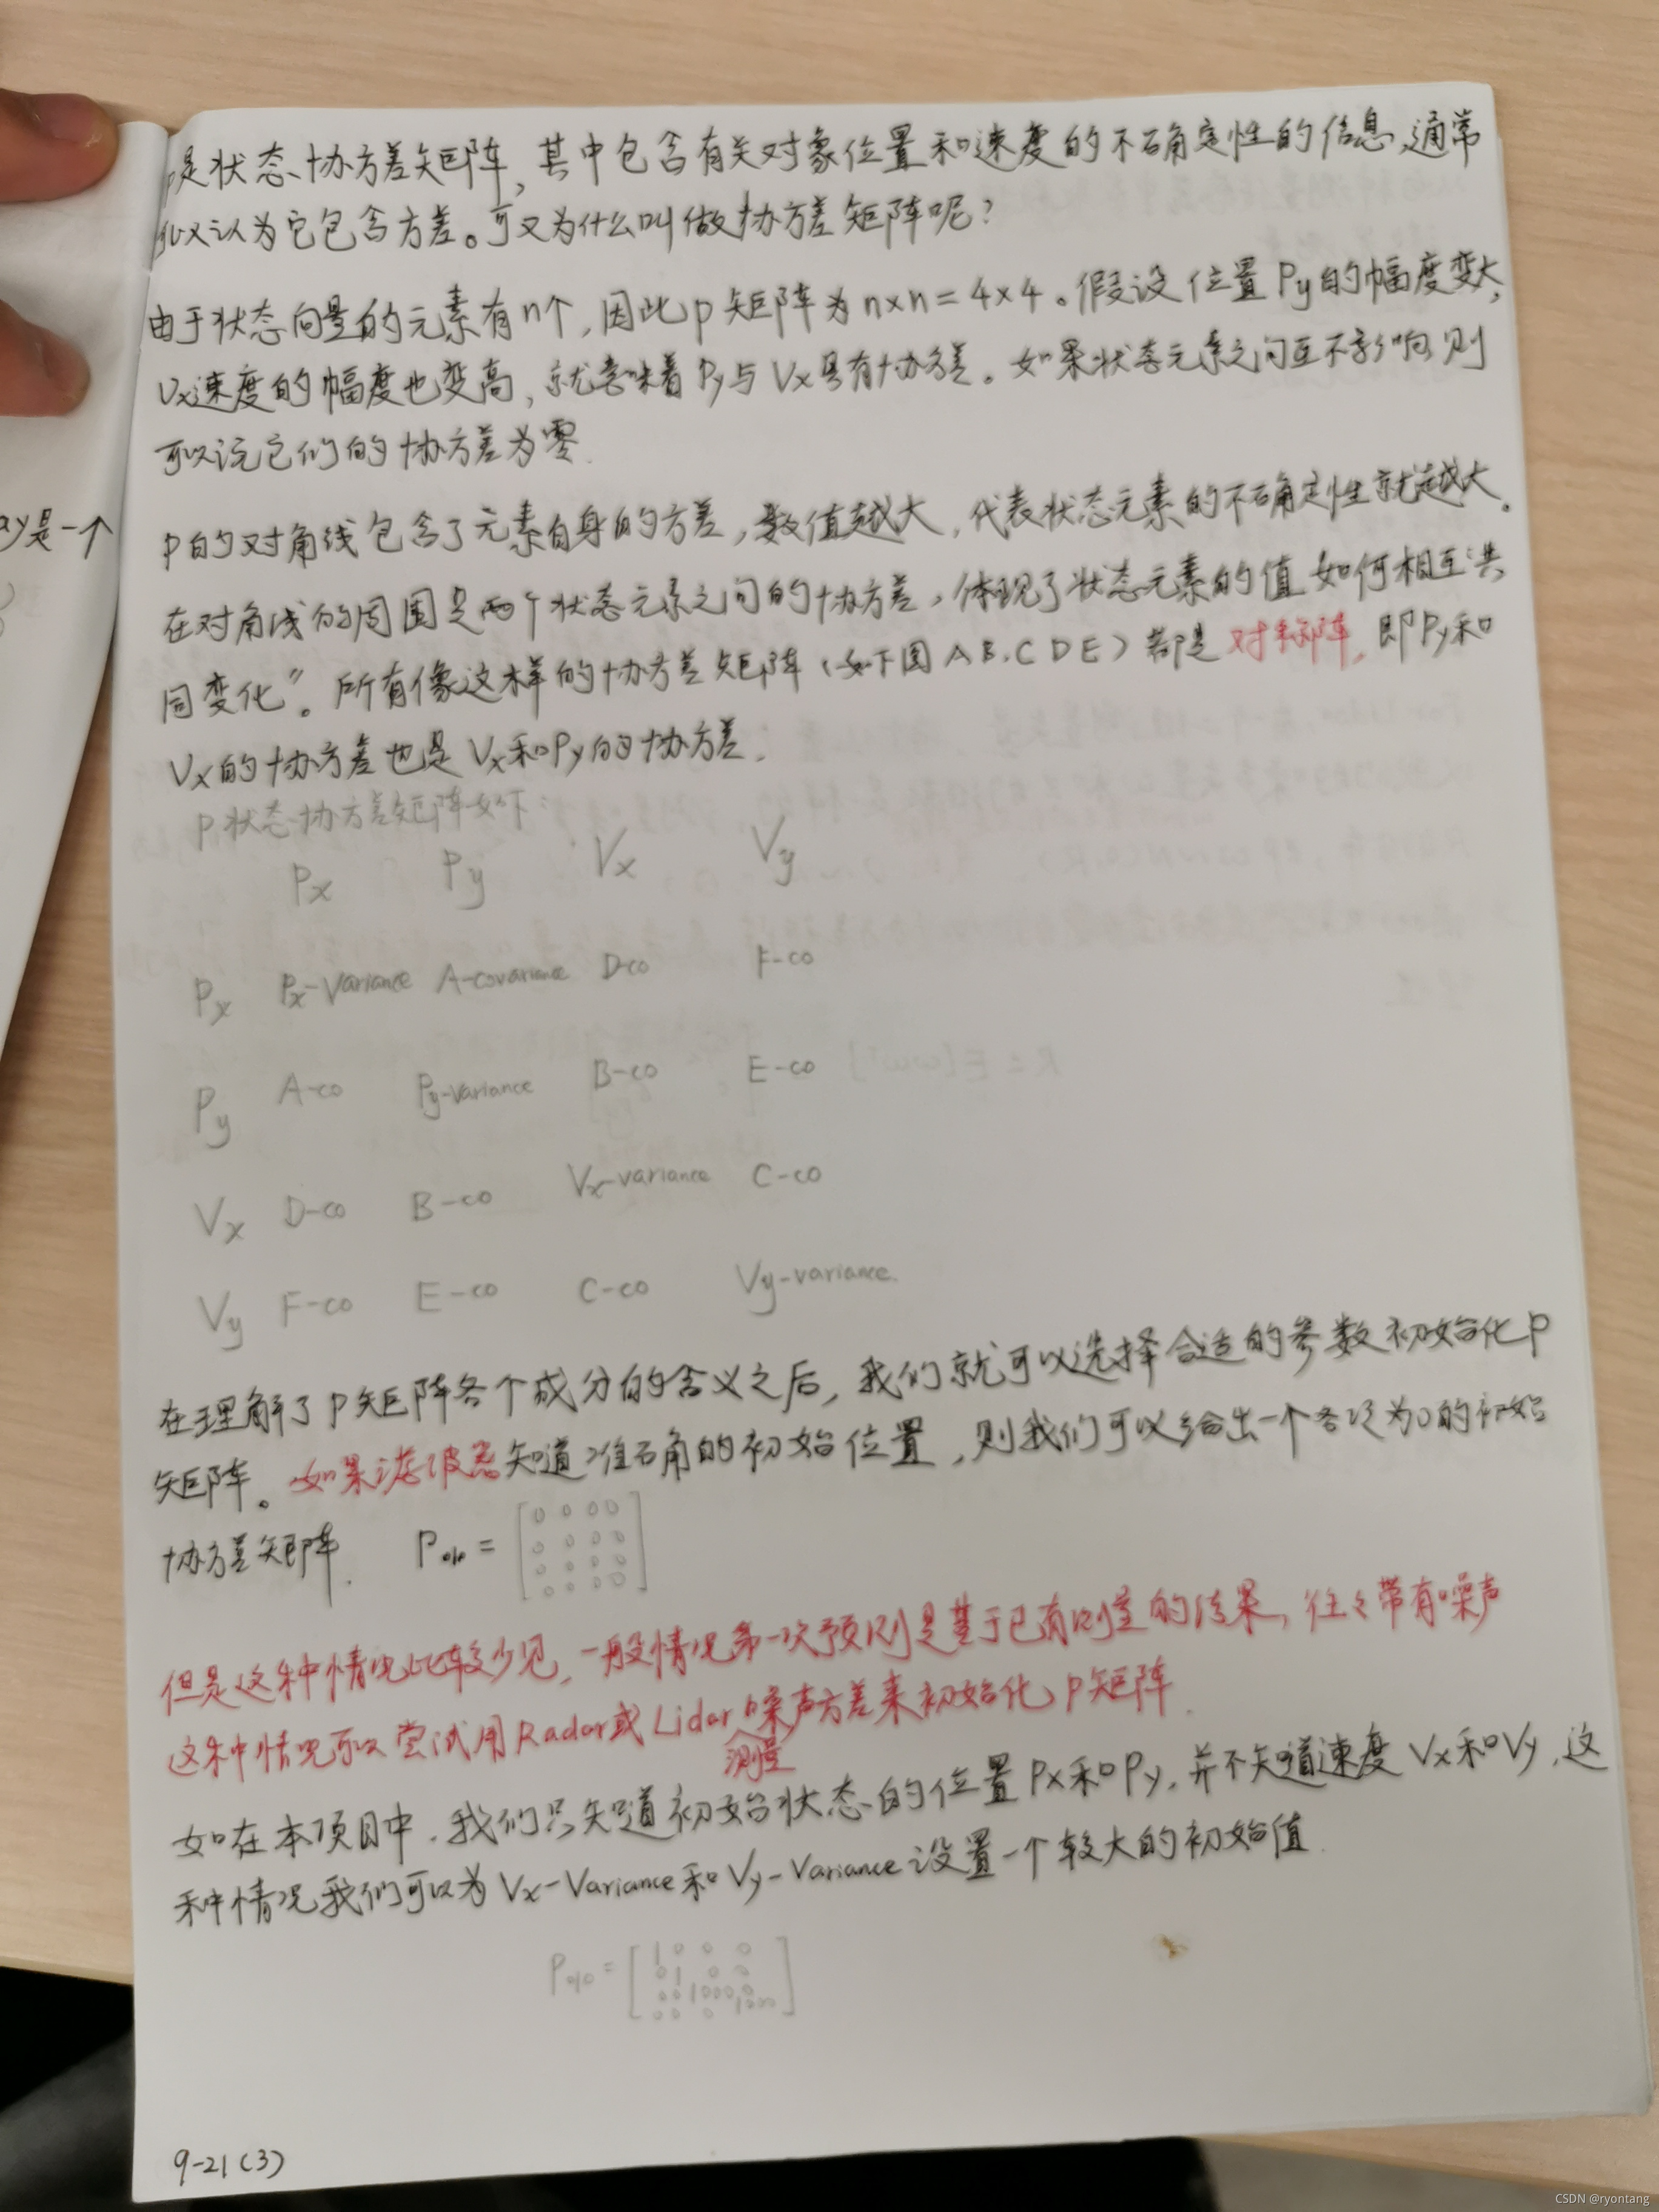 P是状态协方差矩阵,其中包含有关对象位置和速度的不确定性的信息,通常
可以认为它包含方差。可又为什么叫做协方差矩阵呢?
由于状态向量的元素有n个,因此P矩阵为n×n=4×4。假设位置Py的幅度变大,
Vx速度的幅度也变高,就意味着Py与Vx具有协方差。如果状态元素之间互不影响则
可以说它们的协方差为零.
ay是一个
P的对角线包含了元素自身的方差,数值越大,代表状态元素的不确定性就越大。
在对角线的周围是两个状态元素之间的协方差,体现了状态元素的值如何相互“共
同变化”。所有像这样的协方差矩阵(如下图A B.C D E)都是对称矩阵,即Py和
Vx的协方差也是Vx和Py的协方差.
P状态协方差矩阵如下:
Px Py Vx Vy
Px Px-Variance A-covariance D-co F-co
Py A-co Py-variance B-co E-co
Vx D-co B-co Vx-variance C-co
Vy F-co E-co C-co Vy-variance.
在理解了P矩阵各个成分的含义之后,我们就可以选择合适的参数初始化P
矩阵。如果滤波器知道准确的初始位置,则我们可以给出一个各项为0的初始
协方差矩阵. P0|0 = [0 0 0 0
0 0 0 0
0 0 0 0
0 0 0 0]
但是这种情况比较少见,一般情况第一次预测是基于已有测量的结果,往々带有噪声
这种情况可以尝试用Radar或Lidar噪声方差来初始化P矩阵.
测量
如在本项目中.我们只知道初始状态的位置Px和Py.并不知道速度Vx和Vy.这
种情况我们可以为Vx-Variance和Vy-Variance设置一个较大的初始值.
P0|0 = [1 0 0 0
0 1 0 0
0 0 1000 0
0 0 0 1000]
9-21(3)
CSDN @ryontang